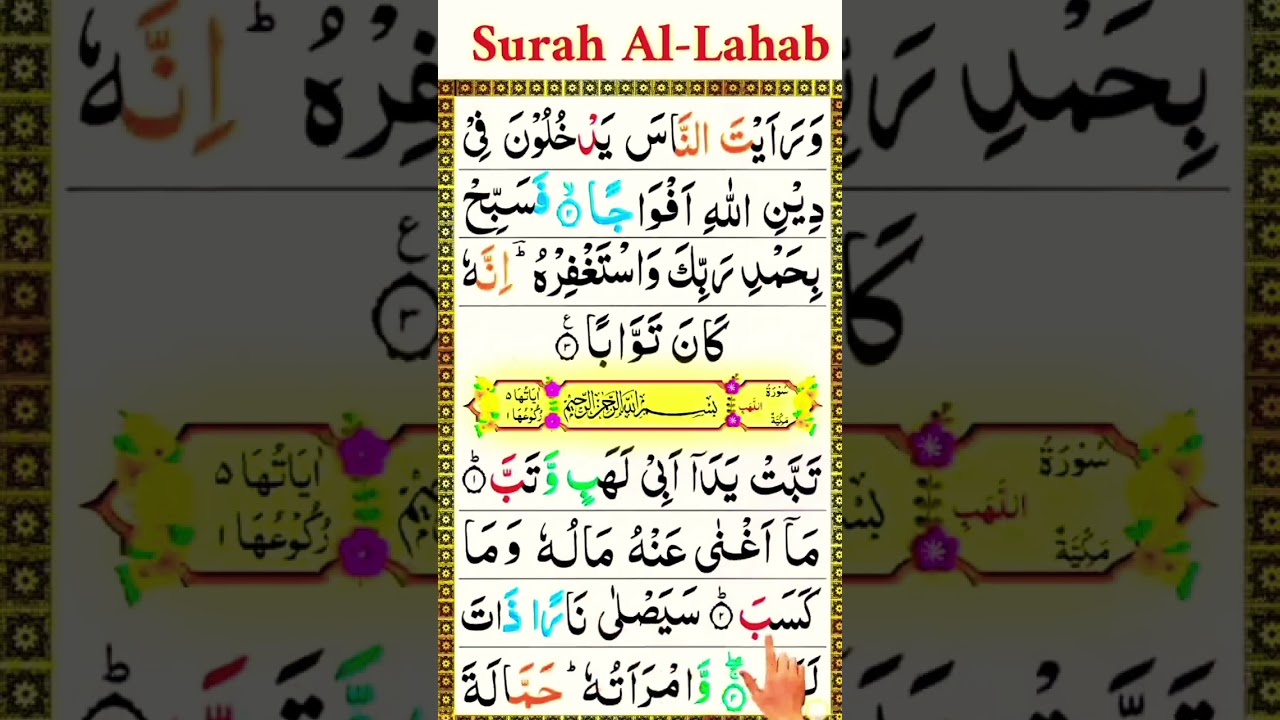 Surah Al-Lahab
وَرَاَيْتَ النَّاسَ يَدْخُلُوْنَ فِيْ
دِيْنِ اللّٰهِ اَفْوَاجًا ۙ۝۲ فَسَبِّحْ
بِحَمْدِ رَبِّكَ وَاسْتَغْفِرْهُ ؕ اِنَّهٗ
كَانَ تَوَّابًا ۝۳ ع
سُوْرَةُ اللَّهَبِ مَكِّيَّةٌ
بِسْمِ اللّٰهِ الرَّحْمٰنِ الرَّحِيْمِ
اٰيَاتُهَا ۵ رُكُوْعُهَا ۱
تَبَّتْ يَدَاۤ اَبِيْ لَهَبٍ وَّتَبَّ ؕ۝۱
مَاۤ اَغْنٰى عَنْهُ مَالُهٗ وَمَا
كَسَبَ ؕ۝۲ سَيَصْلٰى نَارًا ذَاتَ
وَّامْرَاَتُهٗ ؕ حَمَّالَةَ